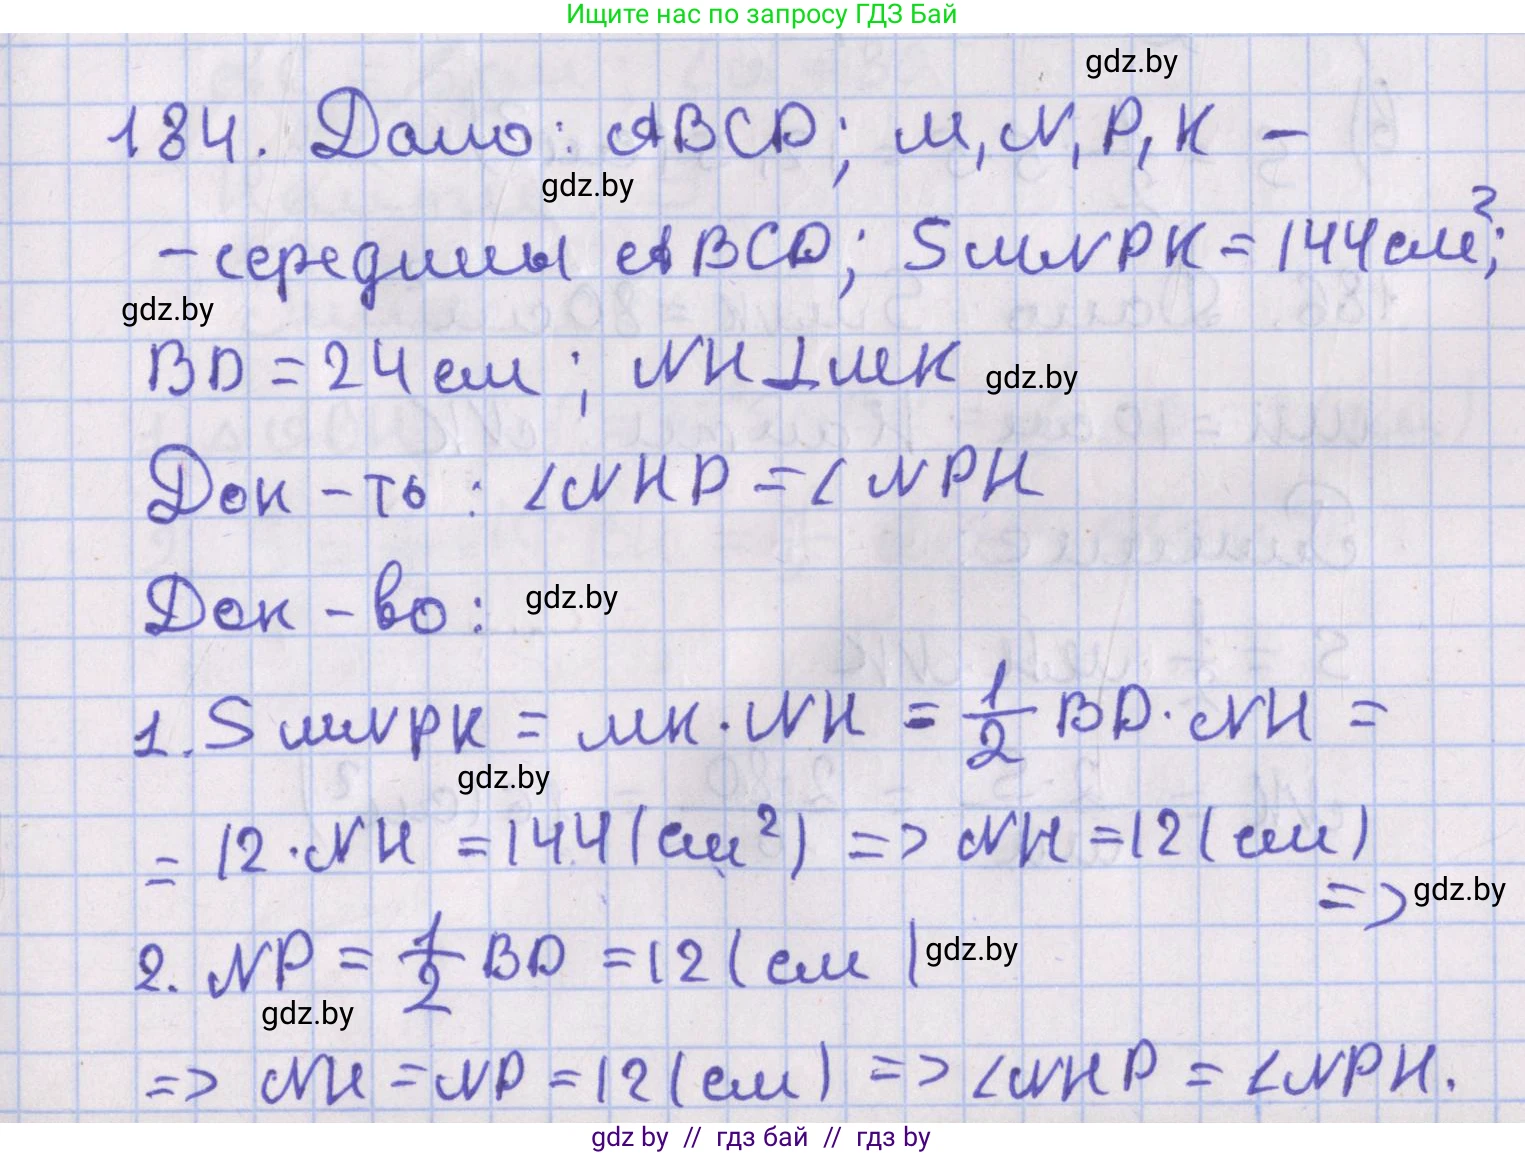 Ищите нас по запросу ГДЗ Бай
gdz.by
184. Дано: ABCD; M, N, P, K –
gdz.by
– середины ABCD; SMNPK = 144 см²;
gdz.by
BD = 24 см; NH ⊥ MK
gdz.by
Док-ть: ∠NHP = ∠NPH
Док-во:
gdz.by
1. SMNPK = MK · NH = 1/2 BD · NH =
gdz.by
= 12 · NH = 144 (см²) => NH = 12 (см)
=>
gdz.by
2. NP = 1/2 BD = 12 (см)
gdz.by
gdz.by
=> NH = NP = 12 (см) => ∠NHP = ∠NPH.
gdz by // гдз бай // гдз by